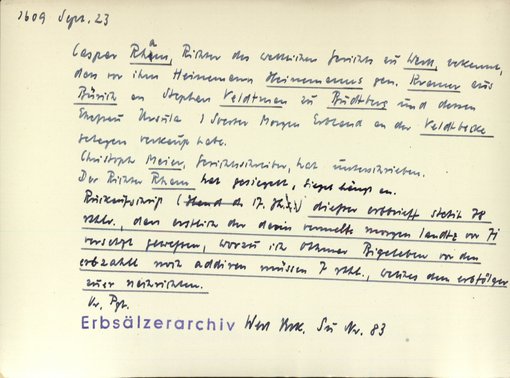 1609 Sept. 23
Caspar Rham, Richter des weltlichen Gerichts zu Werl, bekennt,
dass vor ihm Heinemann Heinemanns gen. Kramer aus
Büsich an Stephan Veldtman zu Budberg und dessen
Ehefrau Ursula 1 Morgen Erbland an der Veldtbecke
gelegen verkauft habe.
Christoph Meier, Gerichtsschreiber, hat unterschrieben.
Der Richter Rham hat gesiegelt, Siegel hängt an.
Rückaufschrift (Hand des 17. Jh.s) dießer erbbrieff stehet 78
rthlr., dan erstlich der darin vermelte morgen landtz vor 71
versetzt gewessen, worauf ich Othmar Bigeleben vor den
erbzahlt noch addiren müssen 7 rthl., welches den erbfolger
zuer nachrichten.
Or. Pgt.
Erbsälzerarchiv Werl Urk. Su Nr. 83